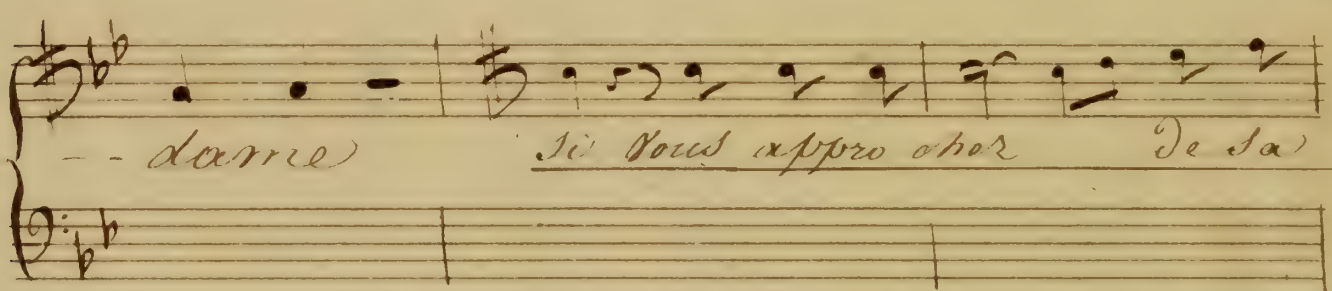 -- dame si vous appro chez De sa